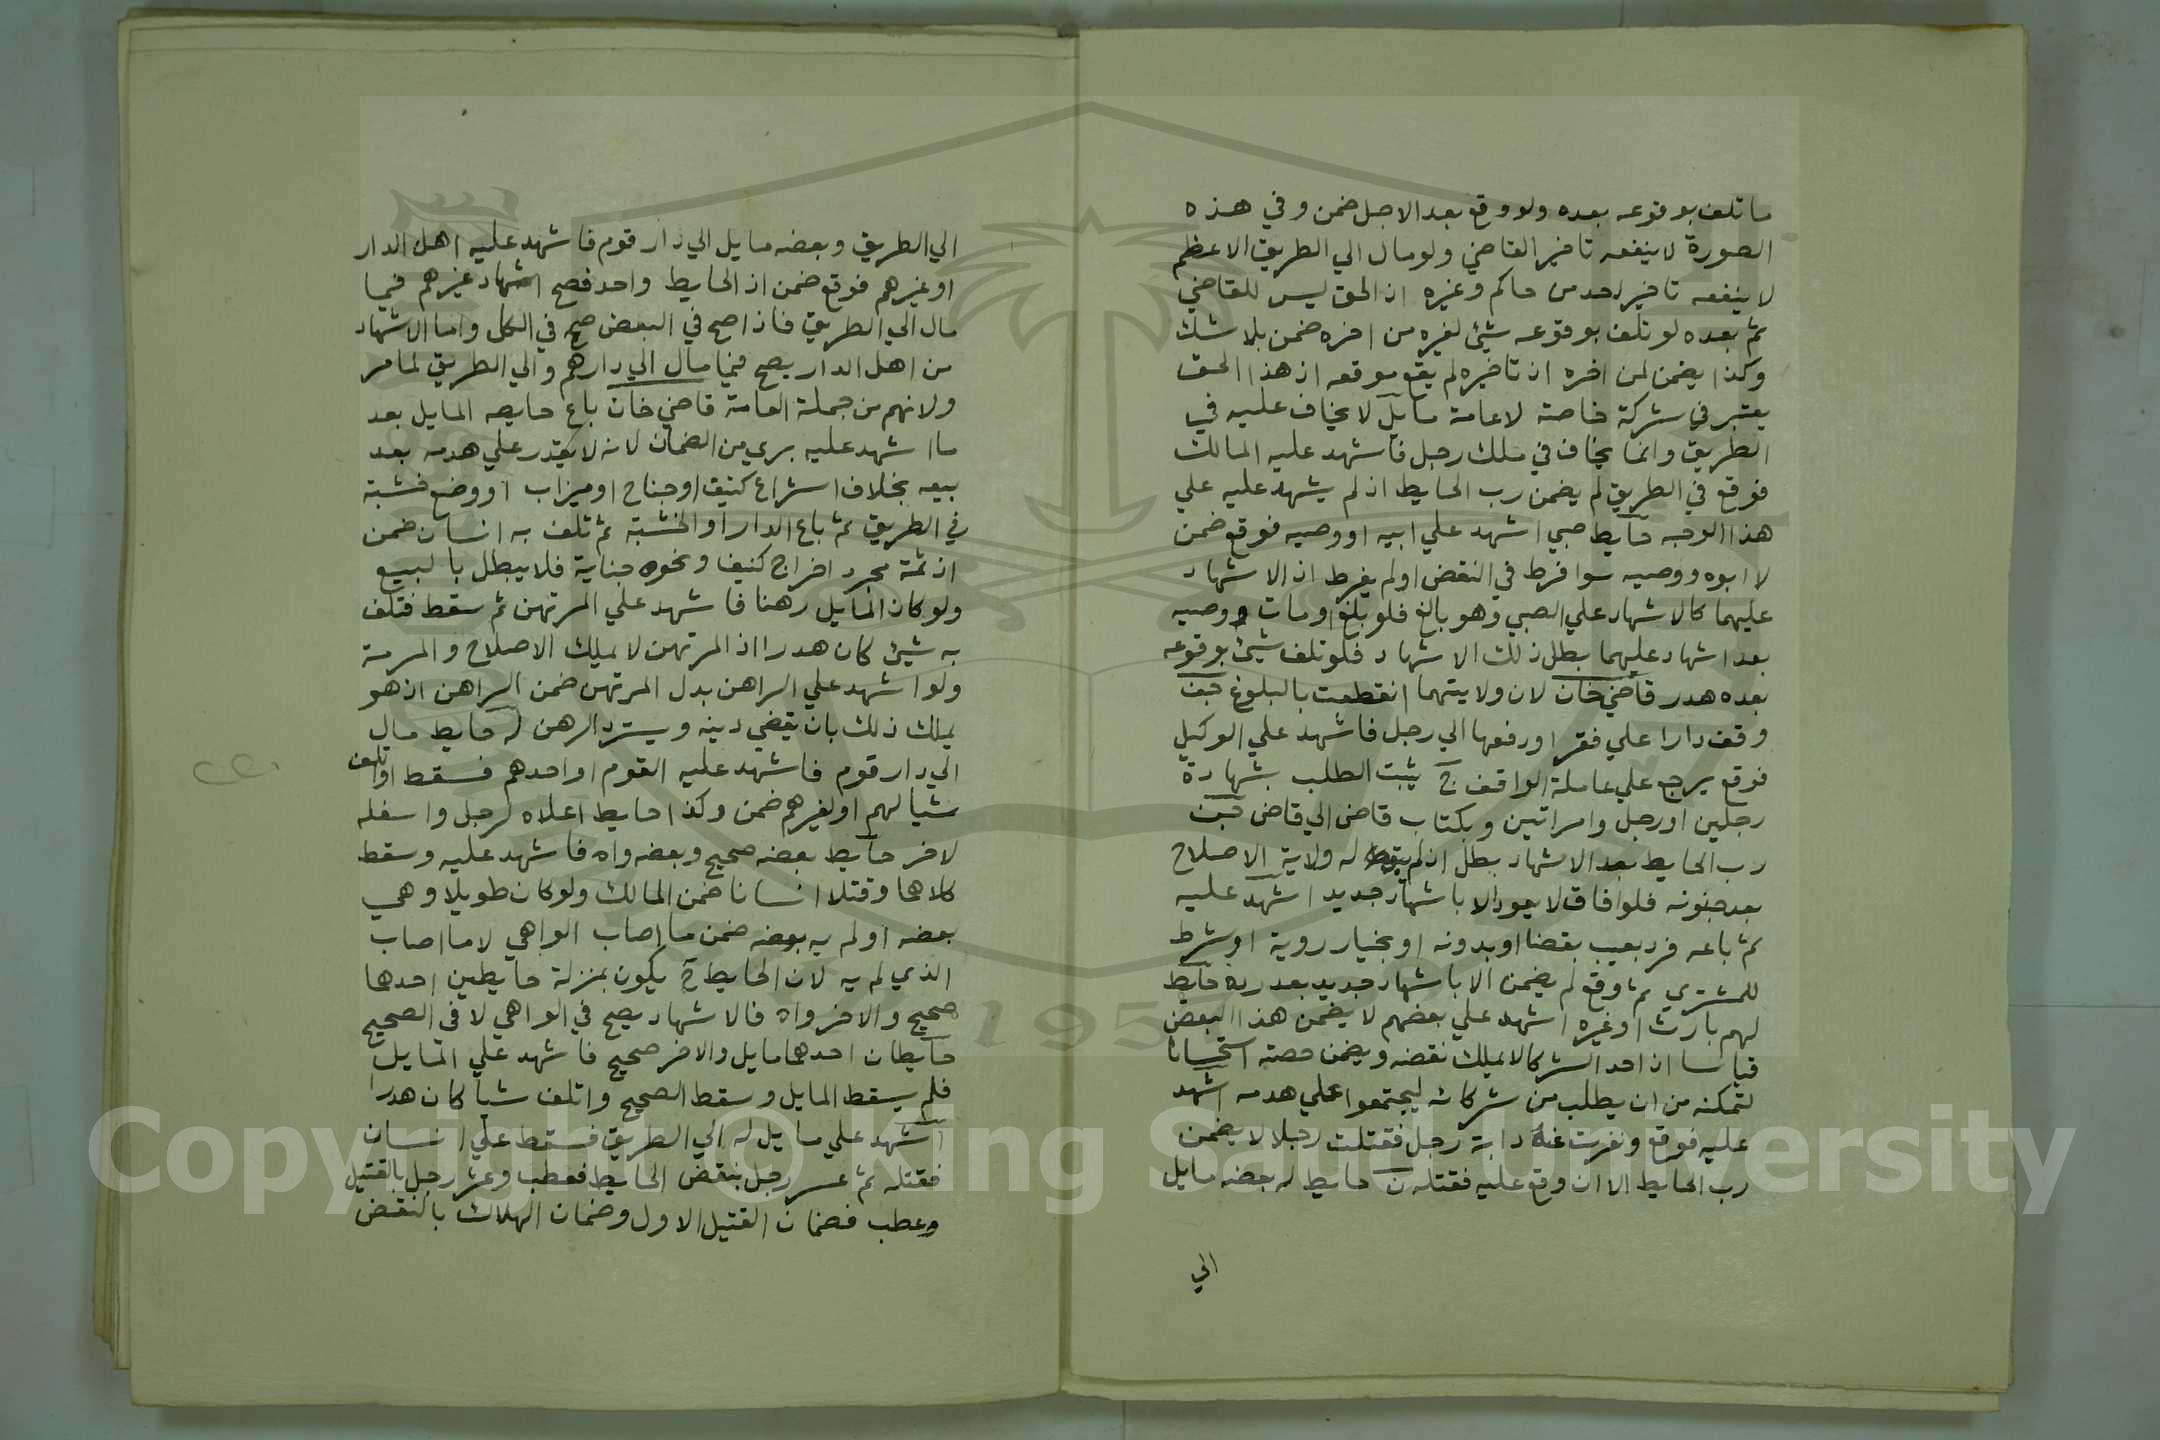 ما تلف بوقوعه بعده ولو وقع بعد الاجل ضمن وفي هذه
الصورة لا ينفعه تاخير القاضي ولو مال الي الطريق الاعظم
لا ينفعه تاخير احد من حاكم وغيره اذ الحق ليس للقاضي
ثم بعده لو تلف بوقوعه شيئ لغيره من اخره ضمن بلا شك
وكذا يضمن لمن اخره اذ تاخيره لم يقع موقعه اذ هذا الحق
يعتبر في شركة خاصة لا عامة مايل لا يخاف عليه في
الطريق وانما يخاف في ملك رجل فاشهد عليه المالك
فوقع في الطريق لم يضمن رب الحايط اذ لم يشهد عليه علي
هذا الوجه حايط صبي اشهد علي ابيه او وصيه فوقع ضمن
لا ابوه ووصيه سوا فرط في النقض او لم يفرط اذ الاشهاد
عليهما كالاشهاد علي الصبي وهو بالغ فلو بلغ او مات ووصيه
بعد اشهاد عليهما بطل ذلك الاشهاد فلو تلف شيئ بوقوعه
بعده هدر قاضي خان لان ولايتهما انقطعت بالبلوغ
وقف دارا علي فقرا ودفعها الي رجل فاشهد علي الوكيل
فوقع يرجع علي عاملة الواقف ج يثبت الطلب بشهادة
رجلين او رجل وامراتين وبكتاب قاض الي قاض جن
رب الحايط بعد الاشهاد بطل اذ لم له ولاية الاصلاح
بعد جنونه فلو افاق لا يعود الا باشهاد جديد اشهد عليه
ثم باعه فرد بعيب بقضا او بدونه او بخيار روية او شرط
للمشتري ثم وقع لم يضمن الا باشهاد جديد بعد رده حايط
لهم بارث او غيره اشهد علي بعضهم لا يضمن هذا البعض
قياسا اذ احد الشركا لا يملك نقضه ويضمن حصته استحسانا
لتمكنه من ان يطلب من شركائه ليجتمعوا علي هدمه اشهد
عليه فوقع ونفرت عنه دابة رجل فقتلت رجلا لا يضمن
رب الحايط الا ان وقع عليه فقتله ن حايط له بعضه مايل
الي
الي الطريق وبعضه مايل الي دار قوم فاشهد عليه اهل الدار
او غيرهم فوقع ضمن اذ الحايط واحد فصح اشهاد غيرهم فيما
مال الي الطريق فاذا صح في البعض صح في الكل واما الاشهاد
من اهل الدار يصح فيما مال الي دارهم والي الطريق لما مر
ولانهم من جملة العامة قاضي خان باع حايطه المايل بعد
ما اشهد عليه بري من الضمان لانه لا يقدر علي هدمه بعد
بيعه بخلاف اشراع كنيف او جناح او ميزاب او وضع خشبة
في الطريق ثم باع الدار او الخشبة ثم تلف به انسان ضمن
اذ ثمة مجرد اخراج كنيف ونحوه جناية فلا يبطل بالبيع
ولو كان المايل رهنا فاشهد علي المرتهن ثم سقط فتلف
به شيئ كان هدرا اذ المرتهن لا يملك الاصلاح والمرمة
ولو اشهد علي الراهن بدل المرتهن ضمن الراهن اذ هو
يملك ذلك بان يقضي دينه ويسترد الرهن له حايط مال
الي دار قوم فاشهد عليه القوم او احدهم فسقط او اتلف
شيا لهم او لغيرهم ضمن وكذا حايط اعلاه لرجل واسفله
لاخر حايط بعضه صحيح وبعضه واه فاشهد عليه وسقط
كلاهما وقتلا انسانا ضمن المالك ولو كان طويلا وهي
بعضه او لم يه بعضه ضمن ما اصاب الواهي لا ما اصاب
الذي لم يه لان الحايط ح يكون بمنزلة حايطين احدهما
صحيح والاخر واه فالاشهاد يصح في الواهي لا في الصحيح
حايطان احدهما مايل والاخر صحيح فاشهد علي المايل
فلم يسقط المايل وسقط الصحيح واتلف شيا كان هدرا
اشهد علي مايل له الي الطريق فسقط علي انسان
فقتله ثم عثر رجل بنقض الحايط فعطب وعثر رجل بالقتيل
وعطب فضمان القتيل الاول وضمان الهلاك بالنقض
Copyright © King Saud University
1957